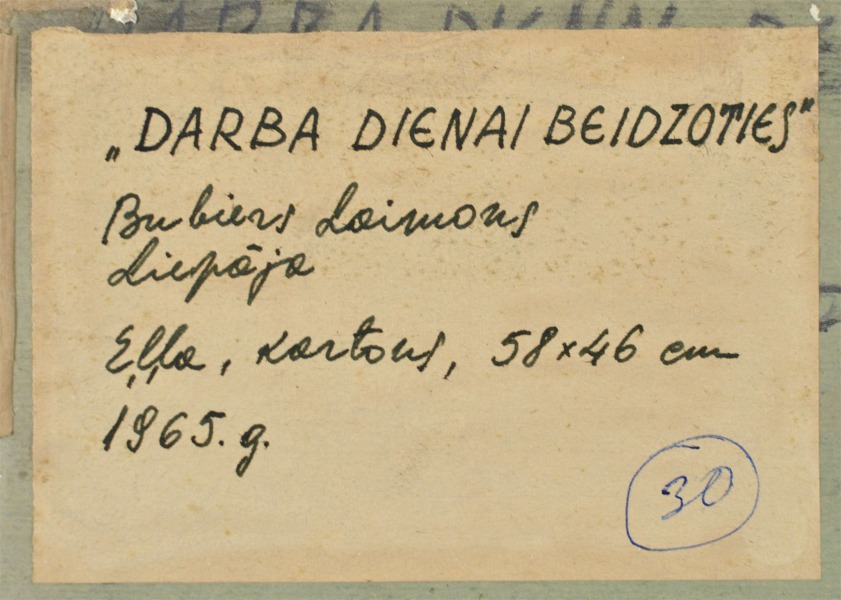 DARBA DIENAI
„DARBA DIENAI BEIDZOTIES"
Bubiers Laimons
Liepāja
Eļļa, kartons, 58×46 cm
1965. g.
30